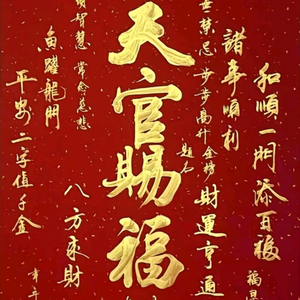 和順一門添百福
福星
諸事順利
財運亨通
無禁忌 步步高升 金榜
題名
天官賜福
智慧 常念慈悲
八方來財
魚躍龍門
平安二字值千金